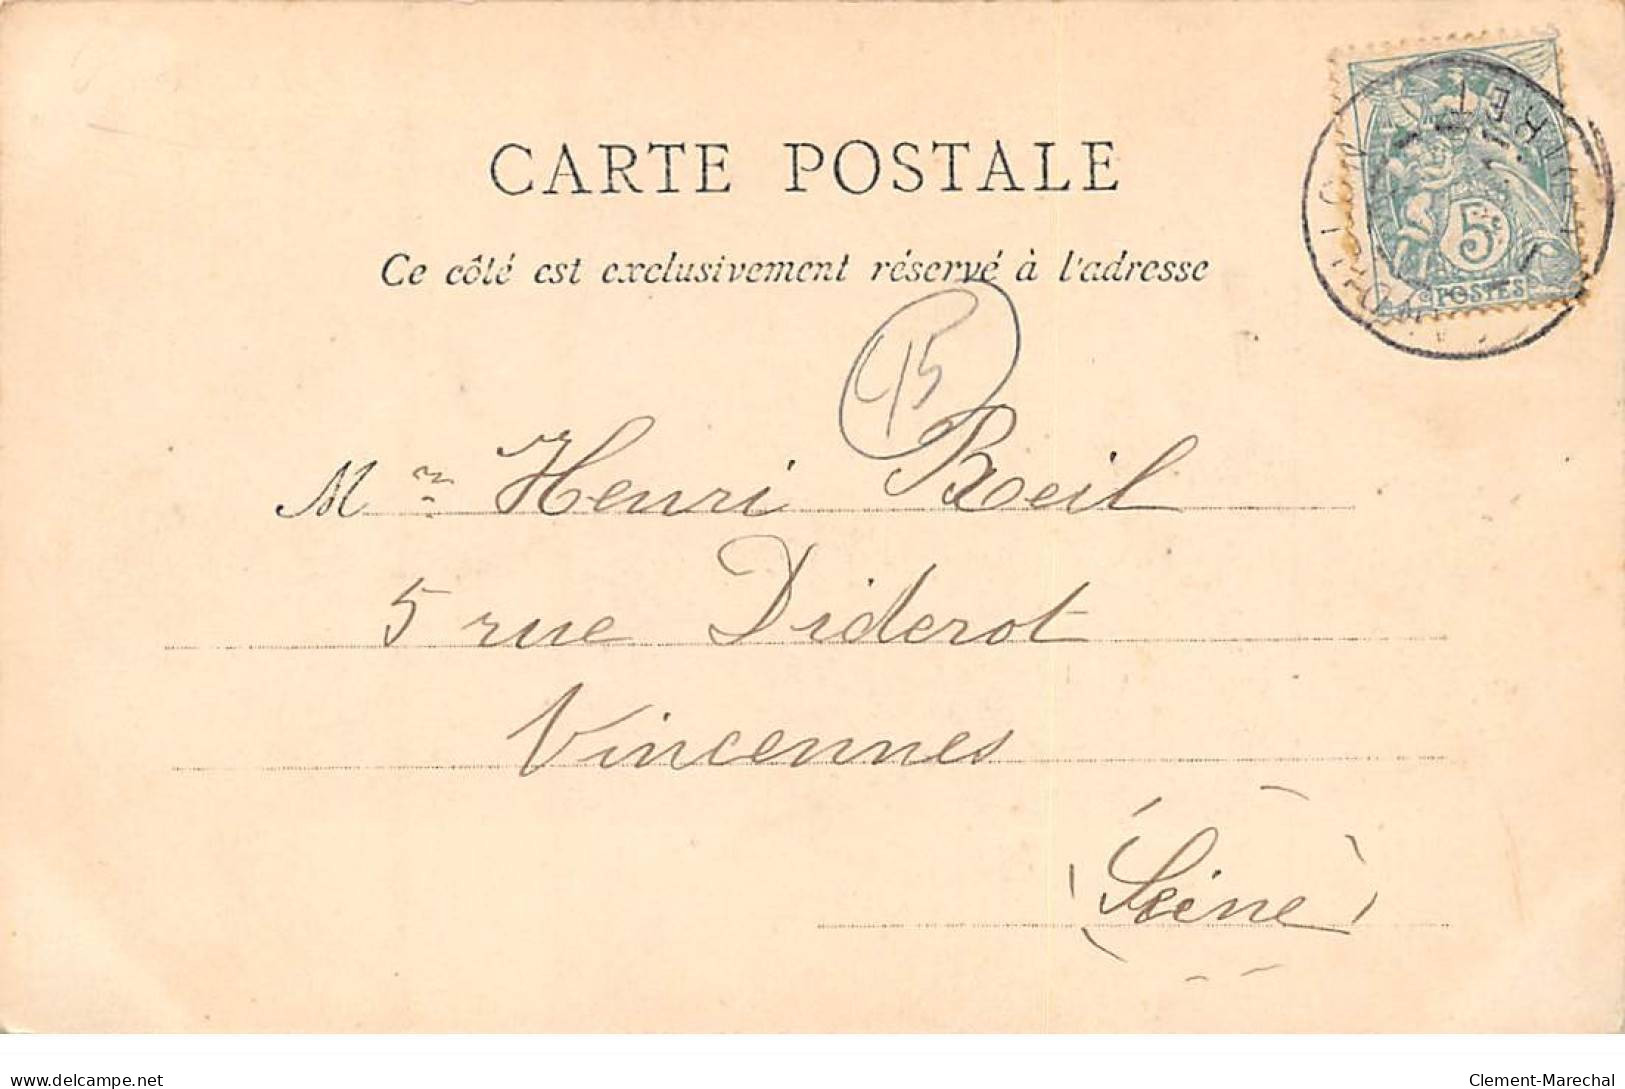 CARTE POSTALE
Ce côté est exclusivement réservé à l'adresse
5c
POSTES
15
Mr Henri Beil
5 rue Diderot
Vincennes
(Seine)
delcampe.net
Clement-Marechal